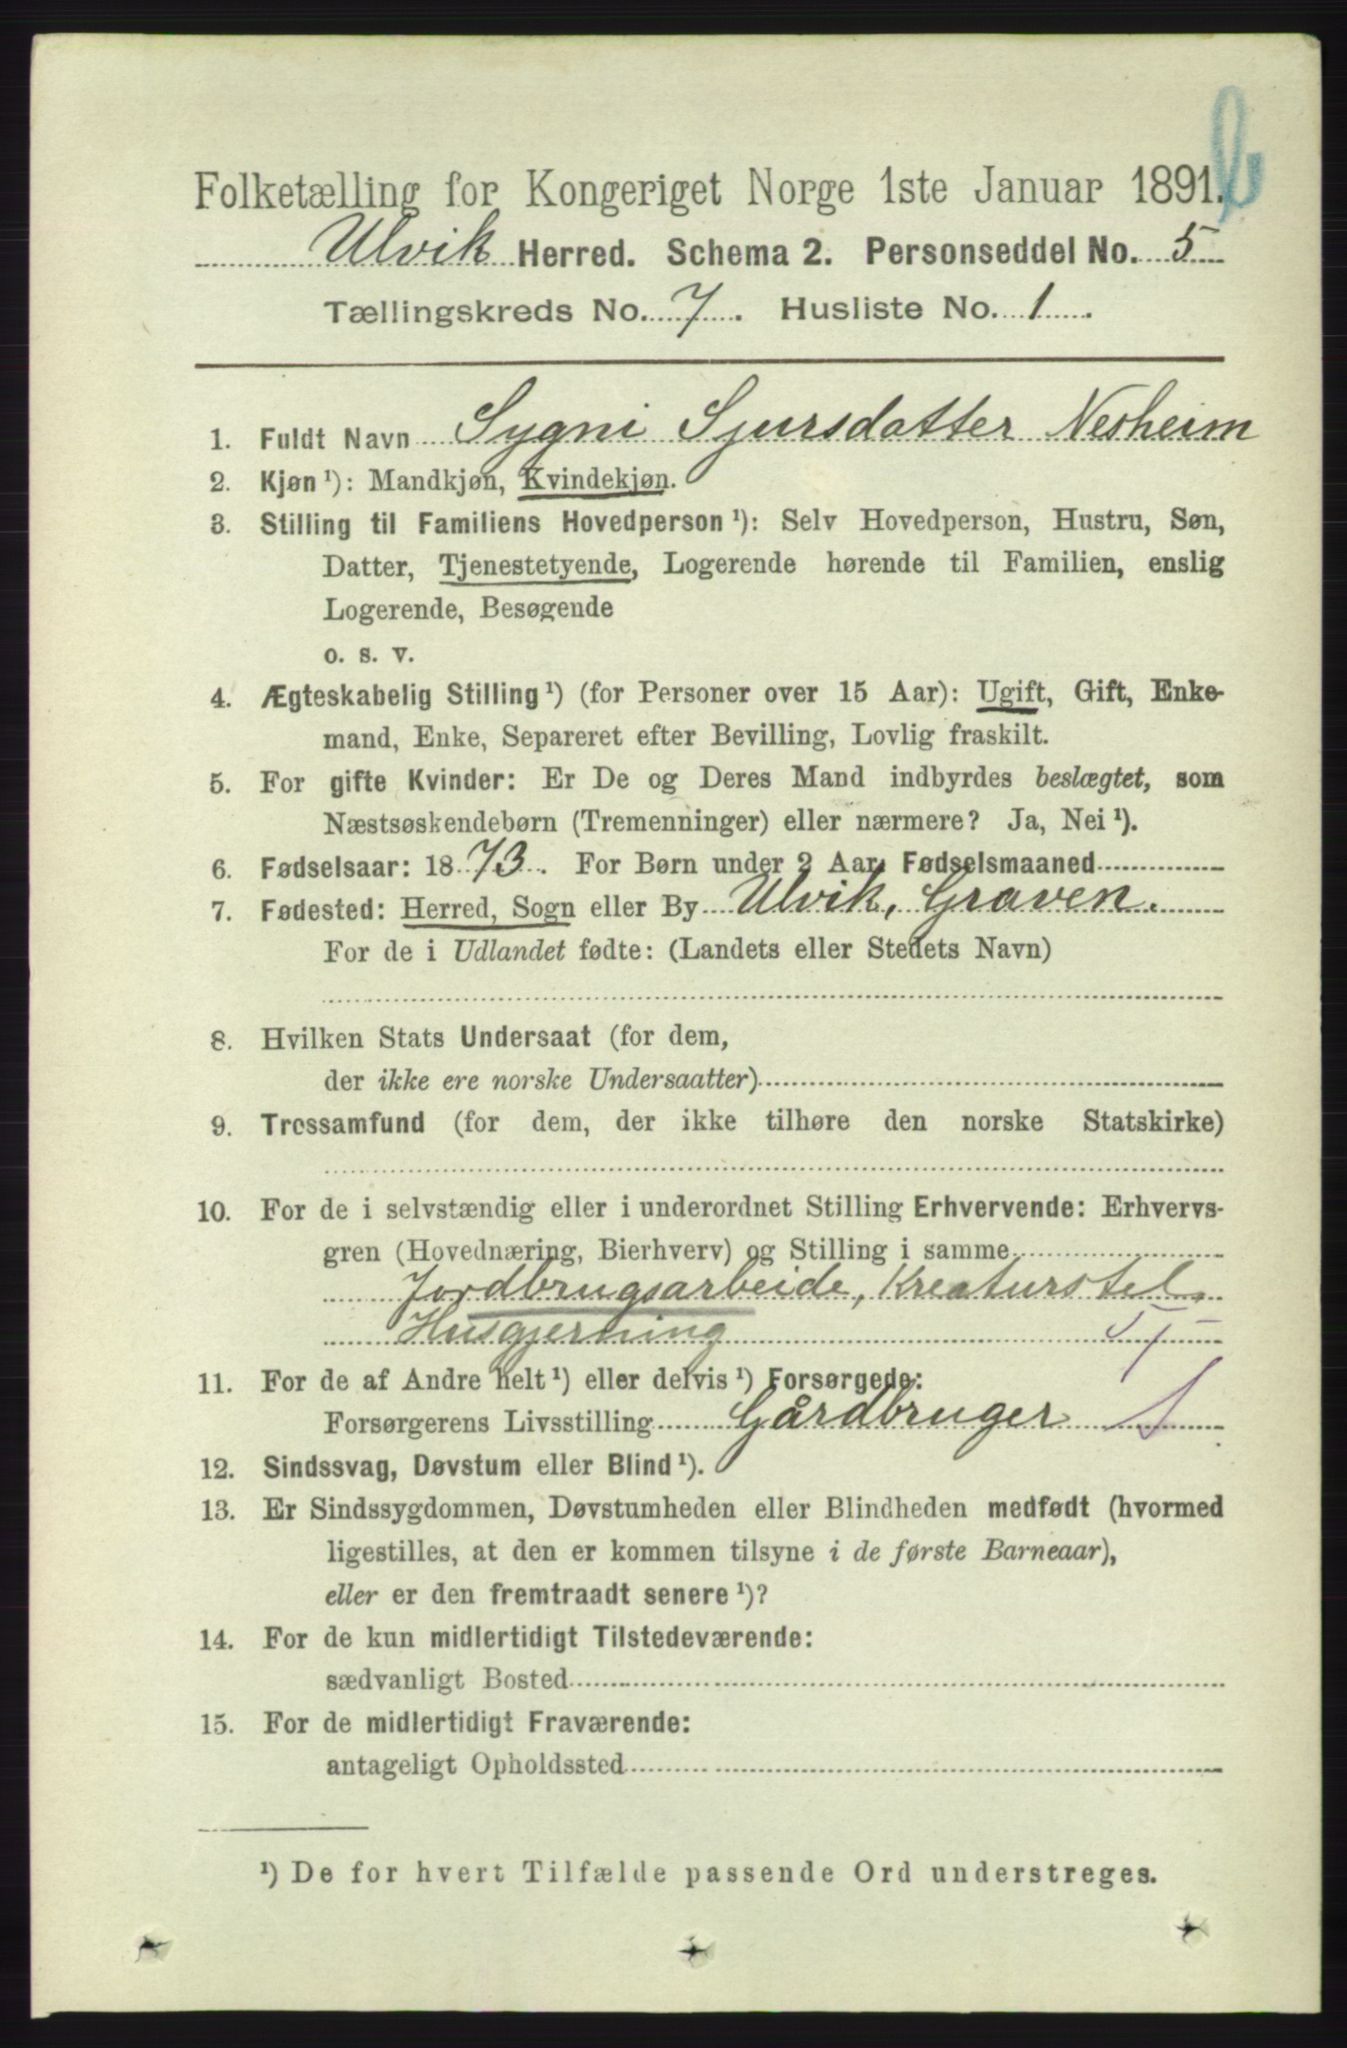 Folketælling for Kongeriget Norge 1ste Januar 1891. b
Ulvik Herred. Schema 2. Personseddel No. 5
Tællingskreds No. 7. Husliste No. 1.
1. Fuldt Navn Sygni Sjursdatter Nesheim
2. Kjøn ¹): Mandkjøn, Kvindekjøn.
3. Stilling til Familiens Hovedperson ¹): Selv Hovedperson, Hustru, Søn,
Datter, Tjenestetyende, Logerende hørende til Familien, enslig
Logerende, Besøgende
o. s. v.
4. Ægteskabelig Stilling ¹) (for Personer over 15 Aar): Ugift, Gift, Enke-
mand, Enke, Separeret efter Bevilling, Lovlig fraskilt.
5. For gifte Kvinder: Er De og Deres Mand indbyrdes beslægtet, som
Næstsøskendebørn (Tremenninger) eller nærmere? Ja, Nei ¹).
6. Fødselsaar: 1873. For Børn under 2 Aar, Fødselsmaaned
7. Fødested: Herred, Sogn eller By Ulvik, Graven.
For de i Udlandet fødte: (Landets eller Stedets Navn)
8. Hvilken Stats Undersaat (for dem,
der ikke ere norske Undersaatter)
9. Trossamfund (for dem, der ikke tilhøre den norske Statskirke)
10. For de i selvstændig eller i underordnet Stilling Erhvervende: Erhvervs-
gren (Hovednæring, Bierhverv) og Stilling i samme
Jordbrugsarbeide, Kreaturstel,
Husgjerning
11. For de af Andre helt ¹) eller delvis ¹) Forsørgede:
Forsørgerens Livsstilling Gårdbruger
12. Sindssvag, Døvstum eller Blind ¹).
13. Er Sindssygdommen, Døvstumheden eller Blindheden medfødt (hvormed
ligestilles, at den er kommen tilsyne i de første Barneaar),
eller er den fremtraadt senere ¹)?
14. For de kun midlertidigt Tilstedeværende:
sædvanligt Bosted
15. For de midlertidigt Fraværende:
antageligt Opholdssted
¹) De for hvert Tilfælde passende Ord understreges.